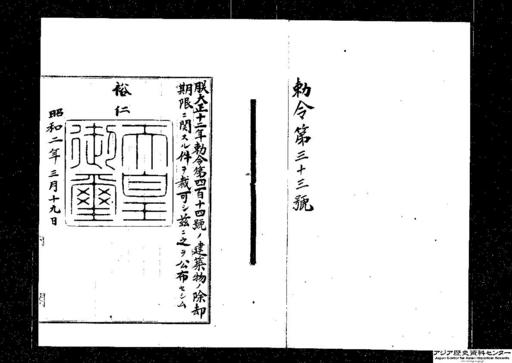 勅令第三十三號
朕大正十二年勅令第四百十四號ノ建築物ノ除却
期限ニ関スル件ヲ裁可シ茲ニ之ヲ公布セシム
裕仁
天皇
御璽
昭和二年三月十九日
アジア歴史資料センター
Japan Center for Asian Historical Records